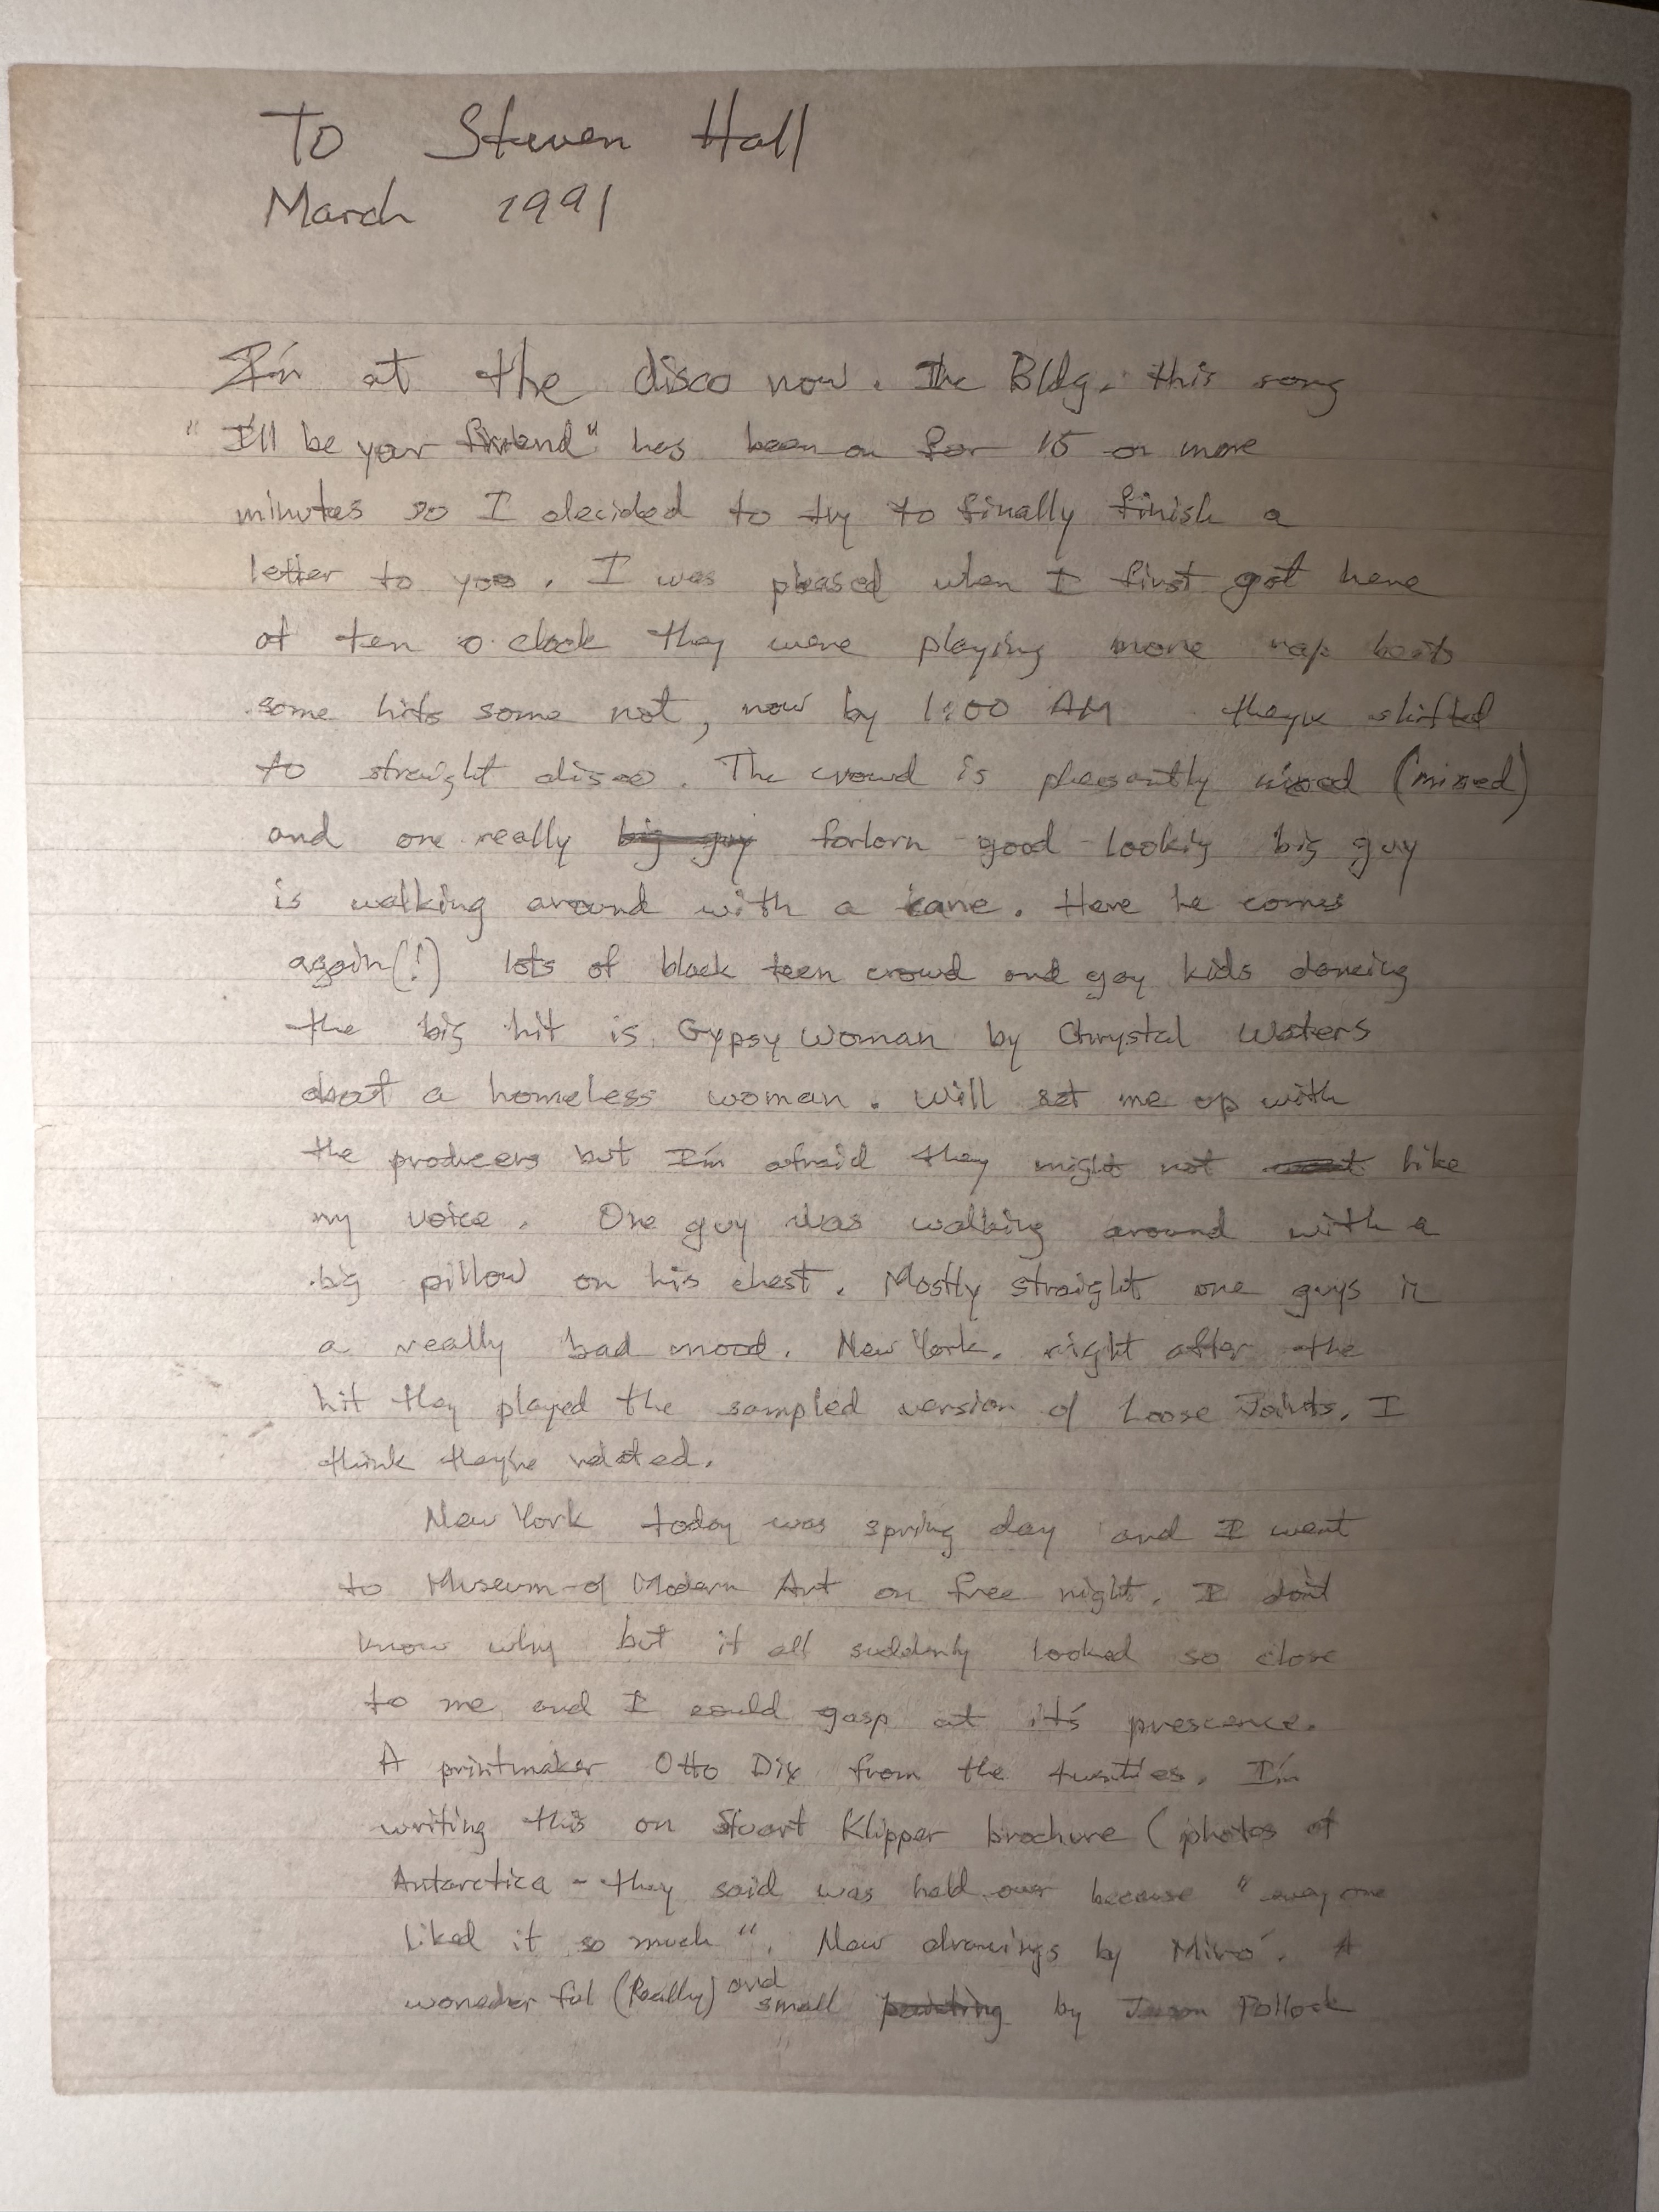 To Steven Hall
March 1991
I'm at the disco now. The Bldg. this song
"I'll be your friend" has been on for 15 or more
minutes so I decided to try to finally finish a
letter to you. I was pleased when I first got here
at ten o'clock they were playing more rap beats
some hits some not, now by 1:00 AM they've shifted
to straight disco. The crowd is pleasantly mixed (mixed)
and one really big guy forlorn good looking big guy
is walking around with a cane. Here he comes
again(!) lots of black teen crowd and gay kids dancing
the big hit is Gypsy Woman by Chrystal Waters
about a homeless woman. Will set me up with
the producers but I'm afraid they might not like
my voice. One guy was walking around with a
big pillow on his chest. Mostly straight one guys in
a really bad mood. New York. right after the
hit they played the sampled version of Loose Joints. I
think they're related.
New York today was spring day and I went
to Museum of Modern Art on free night. I don't
know why but it all suddenly looked so close
to me and I could gasp at it's prescence.
A printmaker Otto Dix from the twenties. I'm
writing this on Stuart Klipper brochure (photos of
Antarctica - they said was held over because "everyone
liked it so much". New drawings by Miró. A
wonderful (Really) and small painting by Pollock